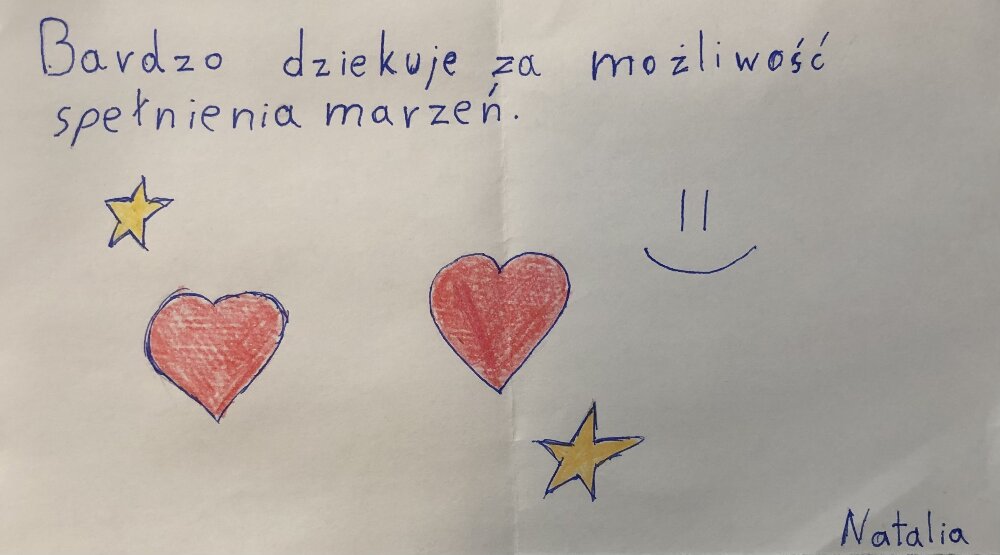 Bardzo dziekuje za możliwość
spełnienia marzeń.
Natalia